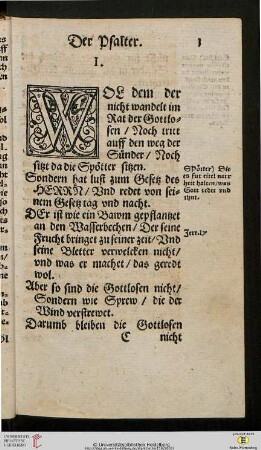 Der Psalter.
I.
WOL dem der
nicht wandelt im
Rat der Gottlo-
sen / Noch tritt
auff den weg der
Sünder / Noch
sitzt da die Spötter sitzen.
Sondern hat lust zum Gesetz des
HERRN / Vnd redet von sei-
nem Gesetz tag vnd nacht.
DEr ist wie ein Bawm gepflantzet
an den Wasserbechen / Der seine
Frucht bringet zu seiner zeit / Vnd
seine Bletter verwelcken nicht /
vnd was er machet / das geredt
wol.
Aber so sind die Gottlosen nicht /
Sondern wie Sprew / die der
Wind verstrewet.
Darumb bleiben die Gottlosen
C nicht
Spötter) Die
es für eitel narr
heit halten / was
Gott redet vnd
thut.
Jere.17